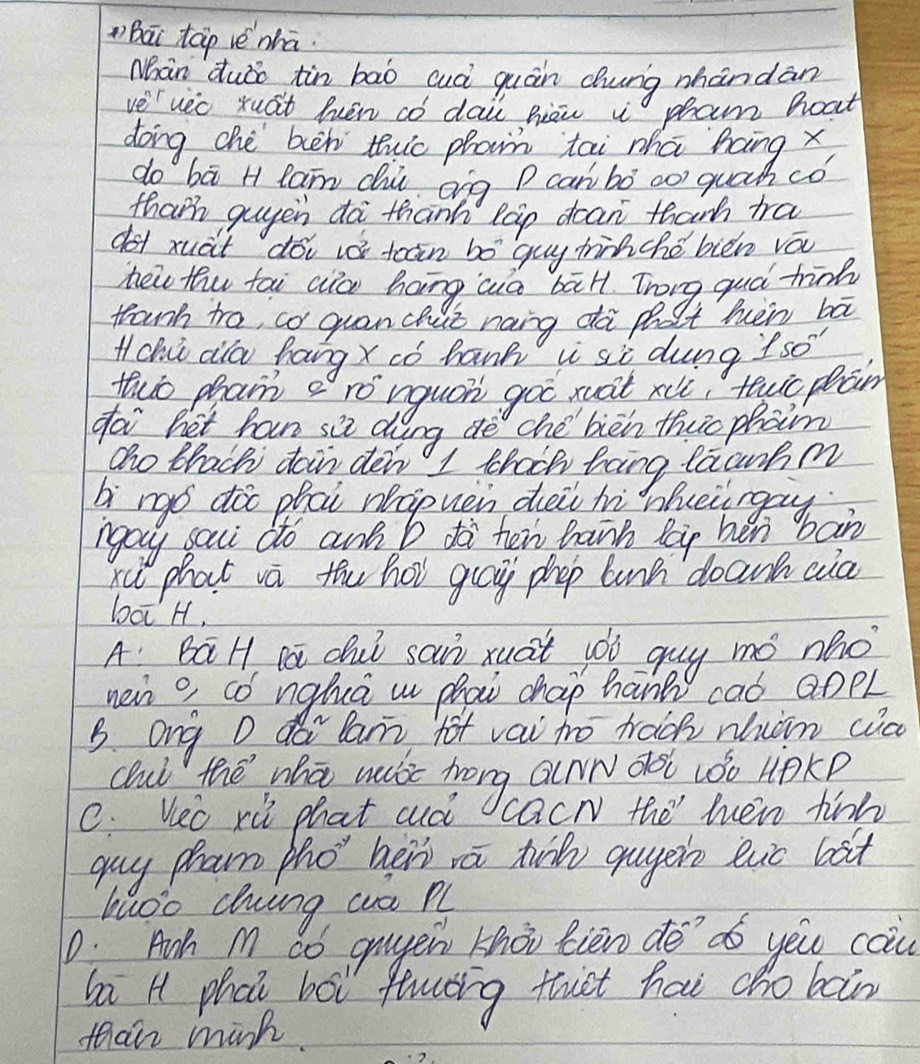 *) Bài tập về nhà:
Nhận được tin báo của quần chúng nhân dân
về việc xuất hiện có dấu hiệu vi phạm hoạt
động chế biến thực phẩm tại nhà hàng X
do bà H làm chủ, ông D cán bộ cơ quan có
thẩm quyền đã thành lập đoàn thanh tra
đột xuất đối với toàn bộ quy trình chế biến và
tiêu thụ tại cửa hàng của bà H. Trong quá trình
thanh tra, cơ quan chức năng đã phát hiện bà
H chủ cửa hàng X có hành vi sử dụng 1 số
thực phẩm o rõ nguồn gốc xuất xứ, thực phẩm
đã hết hạn sử dụng để chế biến thực phẩm
cho khách dẫn đến 1 khách hàng là anh M
bị ngộ độc phải nhập viện điều trị nhiều ngày.
Ngay sau đó anh D đã tiến hành lập biên bản
xử phạt và thu hồi giấy phép kinh doanh của
bà H.
A: Bà H là chủ sản xuất với quy mô nhỏ
nên o, có nghĩa vụ phải chấp hành cao QĐPL
B. Ông D đã làm tốt vai trò trách nhiệm của
chủ thể nhà nước trong QLNN đối với HĐKD
C: Việc xử phạt của CQCN thể hiện tính
quy phạm phổ biến và tính quyền lực bắt
buộc chung của PL
D. Anh M có quyền khởi kiện để đó yêu cầu
bà H phải bồi thường thiệt hại cho bản
thân mình.